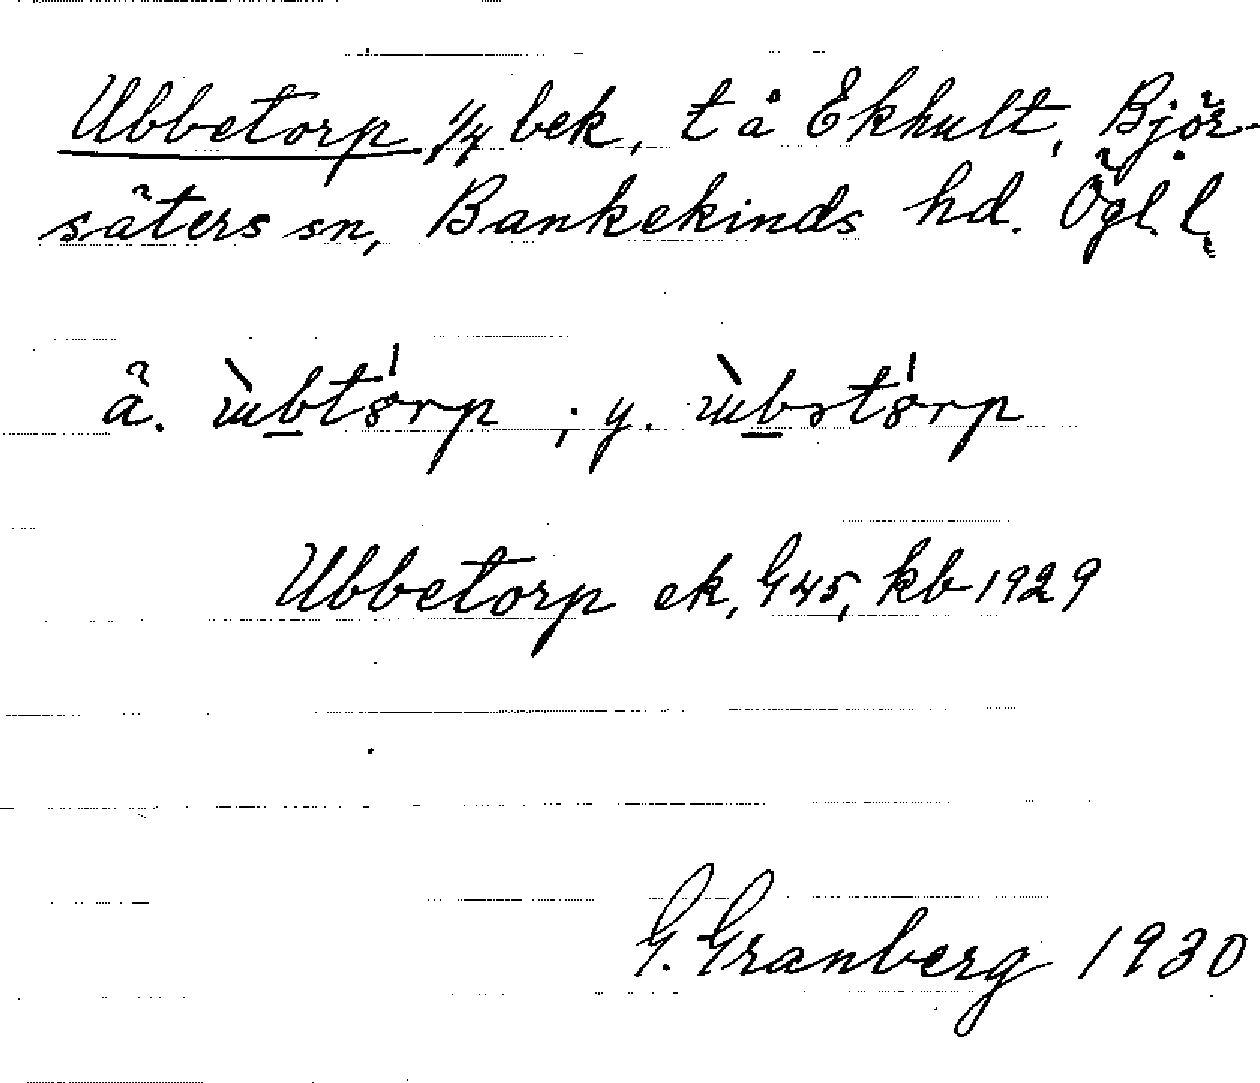 Ubbetorp 1/4 bek, t å Ekhult, Björ-
säters sn, Bankekinds hd. Ögl. l.
ä. ; y.
Ubbetorp ek, G45, kb 1929
G. Granberg 1930